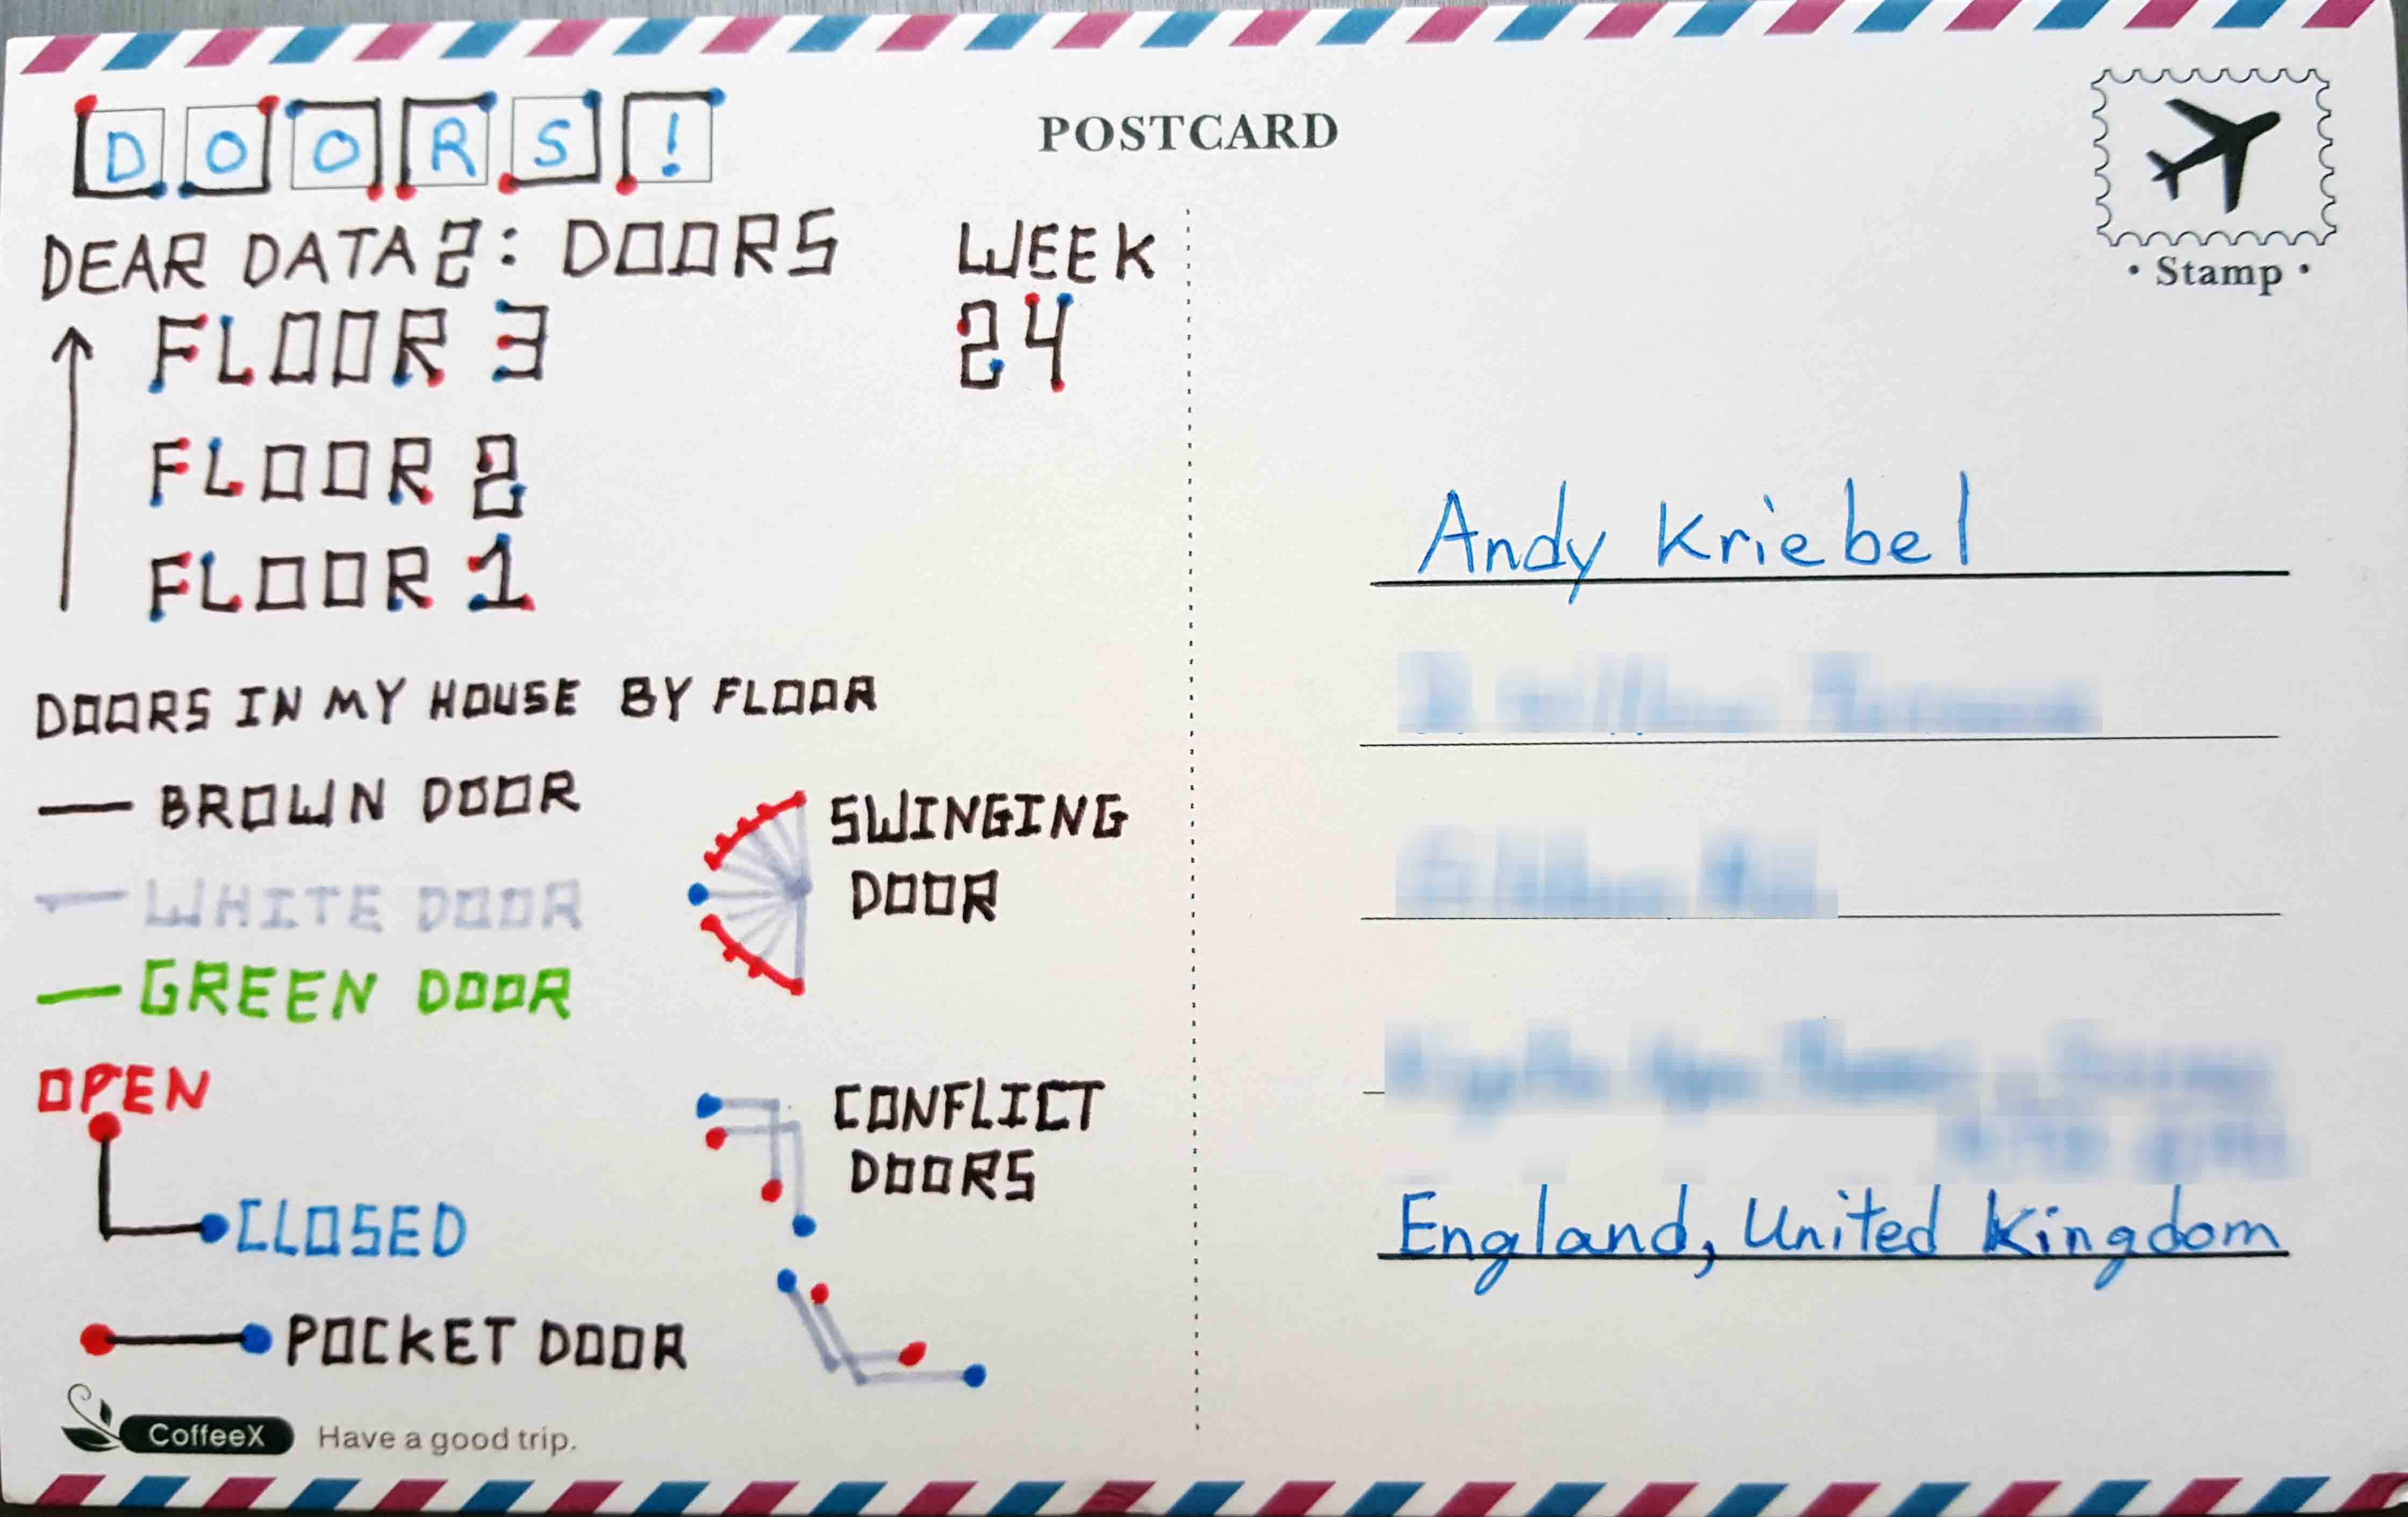 DOORS!
POSTCARD
• Stamp •
DEAR DATA 2: DOORS
WEEK
24
FLOOR 3
FLOOR 2
FLOOR 1
DOORS IN MY HOUSE BY FLOOR
BROWN DOOR
WHITE DOOR
GREEN DOOR
SWINGING
DOOR
OPEN
CLOSED
CONFLICT
DOORS
POCKET DOOR
CoffeeX Have a good trip.
Andy Kriebel
England, United Kingdom